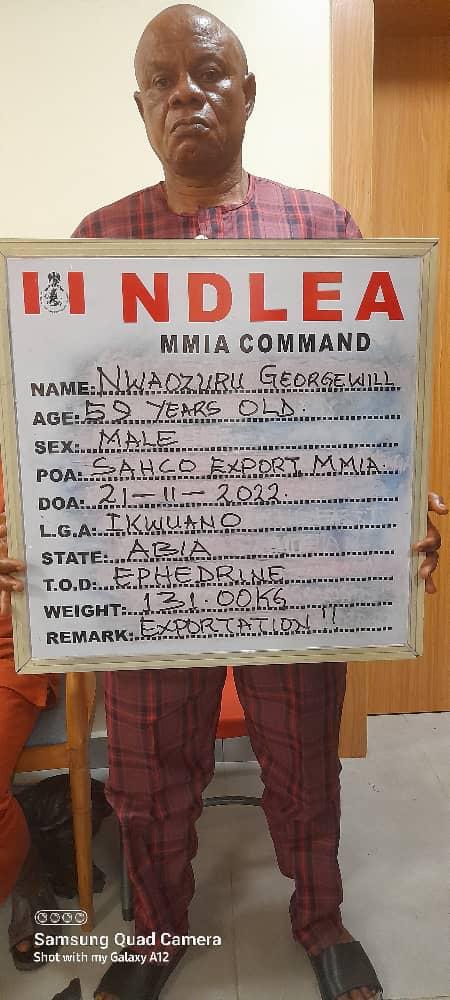 NDLEA
MMIA COMMAND
NAME: NWAOZURU GEORGEWILL
AGE: 59 YEARS OLD.
SEX: MALE
POA: SAHCO EXPORT MMIA.
DOA: 21-11-2022.
L.G.A: IKWUANO
STATE: ABIA
T.O.D: EPHEDRINE
WEIGHT: 131.00KG
REMARK: EXPORTATION "
Samsung Quad Camera
Shot with my Galaxy A12